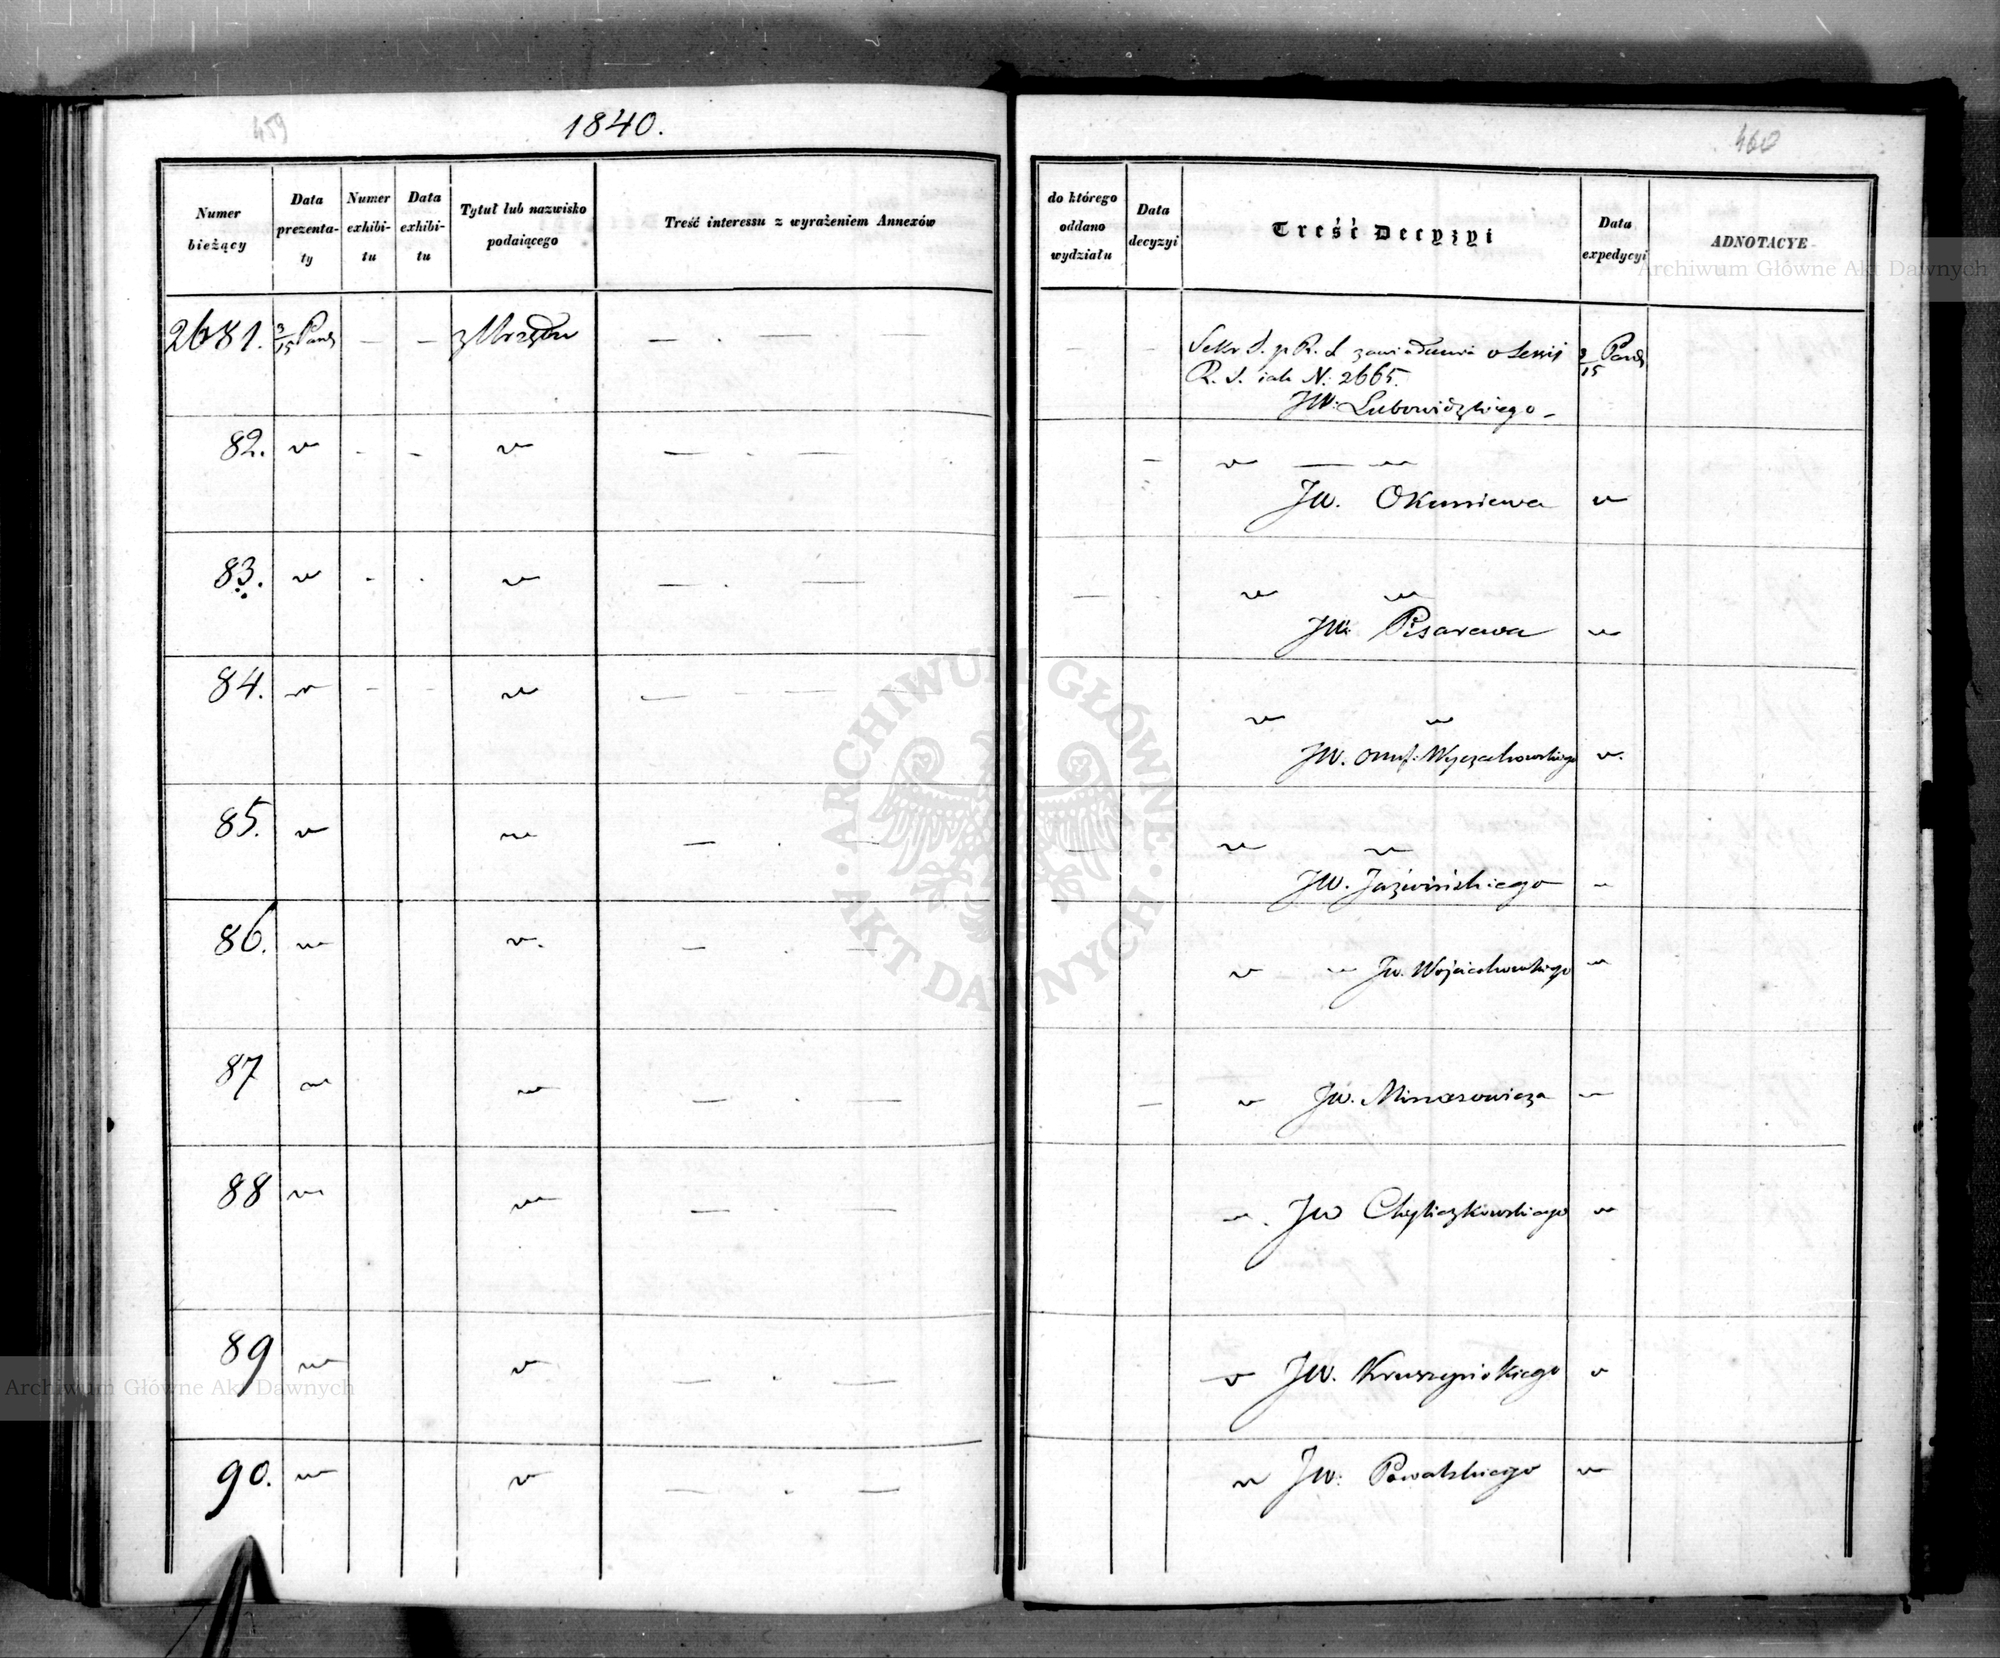 459
1840.
460
Numer bieżący
Data prezentaty
Numer exhibitu
Data exhibitu
Tytuł lub nazwisko podaiącego
Treść interessu z wyrażeniem Annexów
do którego oddano wydziału
Data decyzyi
Treść Decyzyi
Data expedycyi
ADNOTACYE
2681. 3/15 Paźdz — — z Urzędu — . — . — — — Sekr. S. p R. S zawiadamia o Sessij 3/15 Paźdz
R. S. iak N: 2665.
JW: Lubowidzkiego —
82.
JW. Okuniewa
83.
JW. Pisarewa
84.
JW. Onuf: Wyczechowskiego
85.
JW. Jaźwińskiego
86. JW. Wojciechowskiego
87 JW. Minasowicza
88 JW Chyliczkowskiego
89 JW. Kruszyńskiego
90. JW: Powalskiego
ARCHIWUM GŁÓWNE AKT DAWNYCH
Archiwum Główne Akt Dawnych
Archiwum Główne Akt Dawnych